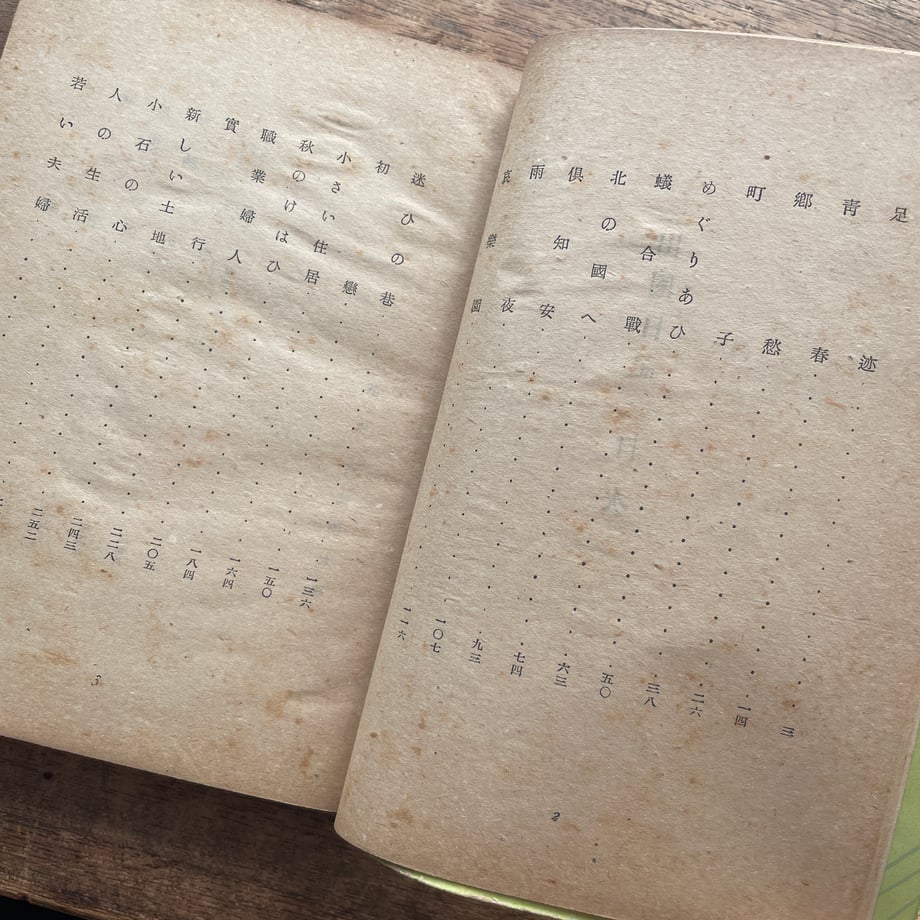 足迹 三
青春 一四
鄕愁 二六
町子 三八
めぐりあひ 五〇
蟻合戰 六三
北の國へ 七四
俱知安 九三
雨夜 一〇七
哀樂園 一一六
2
迷ひの巷 一三六
初戀 一五〇
小さい住居 一六四
秋のけはひ 一八四
職業婦人 二〇五
實行 二二八
新しい土地 二四三
小石の心 二五二
人の生活
若い夫婦
3